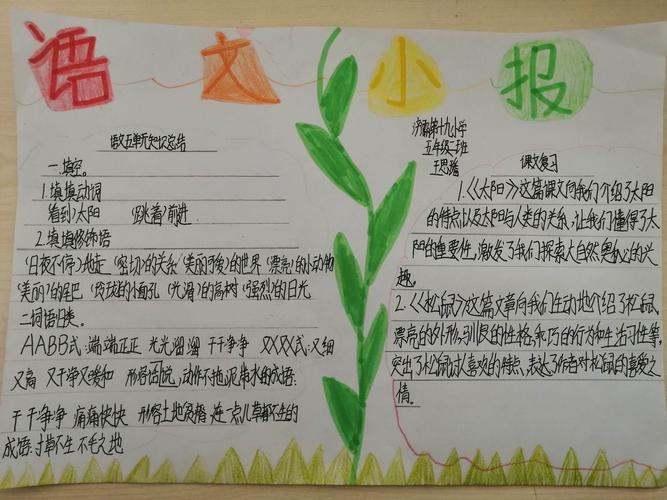 语文小报
语文五单元知识总结
一.填空。
1.填填动词
看到)太阳 (跳着)前进
2.填填修饰语
(日夜不停)地走 (密切)的关系 (美丽可爱)的世界 (漂亮)的小动物
(美丽)的尾巴 (玲珑)的小面孔 (光滑)的高树 (强烈)的日光
二词语归类。
AABB式:端端正正 光光溜溜 干干净净 又X又X式:又细
又高 又干净又暖和 形容 动作不拖泥带水的成语:
干干净净 痛痛快快 形容土地贫瘠,连一点儿草都不生的
成语:寸草不生 不毛之地
第十九小学
五年级二班
王思
课文复习
1.《太阳》这篇课文向我们介绍了太阳
的特点以及太阳与人类的关系,让我们懂得了太
阳的重要性,激发了我们探索大自然奥秘的兴
趣。
2.《松鼠》这篇文章向我们生动地介绍了松鼠
漂亮的外形,驯良的性格,乖巧的行为和生活习性等,
突出了松鼠讨人喜欢的特点,表达了作者对松鼠的喜爱之
情。